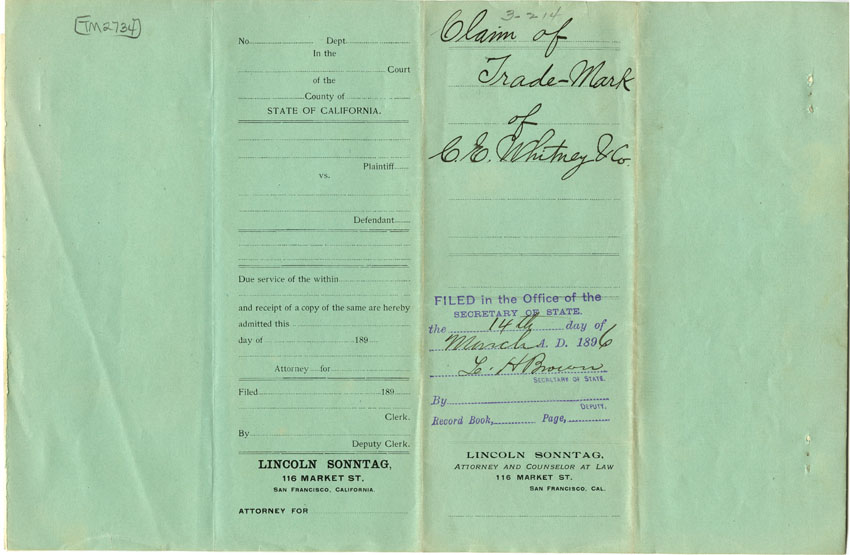 TM2734
No. Dept.
In the
Court
of the
County of
STATE OF CALIFORNIA.
Plaintiff
vs.
Defendant
Due service of the within
and receipt of a copy of the same are hereby
admitted this
day of 189
Attorney for
Filed 189
Clerk.
By
Deputy Clerk.
LINCOLN SONNTAG,
116 MARKET ST.
SAN FRANCISCO, CALIFORNIA.
ATTORNEY FOR
3-214
Claim of
Trade-Mark
of
C. E. Whitney & Co.
FILED in the Office of the
SECRETARY OF STATE.
the 14th day of
March A. D. 1896
L. H Brown
SECRETARY OF STATE.
By
DEPUTY.
Record Book, Page,
LINCOLN SONNTAG,
ATTORNEY AND COUNSELOR AT LAW
116 MARKET ST.
SAN FRANCISCO, CAL.